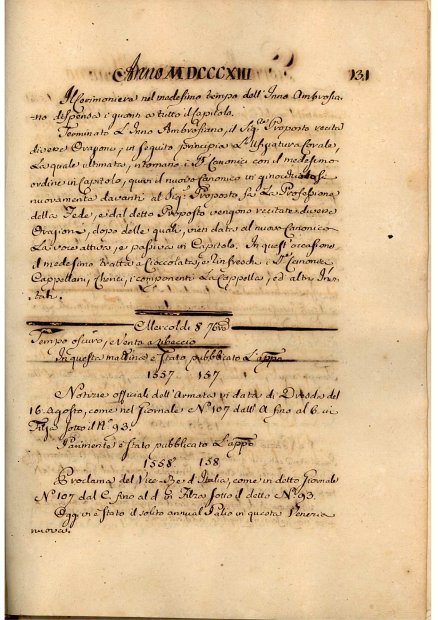 Anno MDCCCXIII 131
Il Cerimoniere nel medesimo tempo dell'Inno Ambrosia-
no dispensa i guanti a tutto il Capitolo.
Terminato L'Inno Ambrosiano, il Sig.re Proposto recita
diverse Orazioni, in seguito principia L'Uffiziatura Corale,
La quale ultimata, ritornano i Canonici con il medesimo
ordine in Capitolo, quivi il nuovo Canonico in ginocchio
nuovamente davanti al Sig.re Proposto fa La Professione
della Fede, e dal detto Proposto vengono recitate diverse
Orazioni, dopo delle quali, vien data al nuovo Canonico
La voce attiva, e passiva in Capitolo. In quest'occasione
il medesimo tratta a Cioccolata, e rinfreschi i
Cappellani, Cherici, i componenti La Cappella, ed altri Invi-
tati.
Mercoldì 8 7bre
Tempo oscuro, e Vento a Libeccio
In questa mattina è stato pubblicato L'appo
1557 157
Notizie officiali dell'Armata in data di Dresda del
16 Agosto, come nel Giornale N.o 107 dall'A fino al 6 in
Filza sotto il N.o 93.
Parimente è stato pubblicato L'appo
1558 158
Proclama del Vice-Re d'Italia, come in detto Giornale
N.o 107 dal C fino al d in Filza sotto il detto N.o 93.
Oggi vi è stato il solito annual Palio in questa Venezia
nuova.